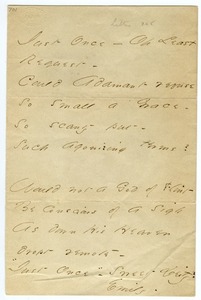 Just Once - Oh Least
Request -
Could Adamant refuse
So small a Grace -
So scanty put -
Such agonizing terms?
Would not a God of Flint
Be conscious of a Sigh
As down His Heaven
dropt remote -
"Just Once" Sweet Deity?
Emily.